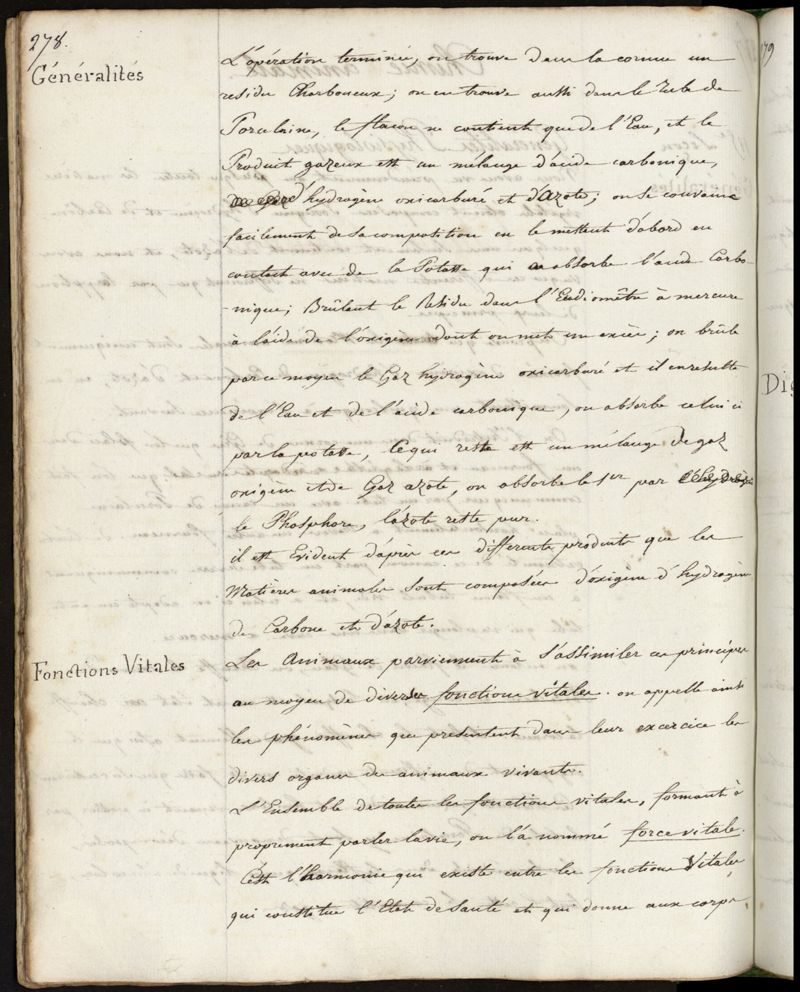 278.
Généralités
L'opération terminée, on trouve dans la cornue un
residu Charboneux; on en trouve aussi dans le Tube de
Porcelaine, le flacon ne contient que de l'Eau, et le
Produit gazeux est un mélange d'acide carbonique,
d'hydrogène oxicarburé et d'azote; on se convainc
facilement de sa composition en le mettant d'abord en
contact avec de la Potasse qui absorbe l'acide Carbo-
-nique; Brûlant le Résidu dans l'Eudiomêtre à mercure
à l'aide de l'oxigène dont on met un excès; on brûle
par ce moyen le Gaz hydrogène oxicarburé et il en resulte
de l'Eau et de l'acide carbonique, on absorbe celui ci
par la potasse, Ce qui reste est un mélange de gaz
oxigène et de Gaz azote, on absorbe le 1er par
le Phosphore, l'azote reste pur.
il est Evident d'après ces differents produits que les
Matières animales sont composées d'oxigène d'hydrogène
de Carbone et d'azote.
Fonctions Vitales
Les Animaux parviennent à s'assimiler ces principes
au moyen de diverses fonctions vitales. on appelle ainsi
les phénomènes que presentent dans leur exercice les
divers organes des animaux vivants.
L'Ensemble de toutes les fonctions vitales, formant à
proprement parler la vie, on l'a nommé force vitale.
C'est l'harmonie qui existe entre les fonctions Vitales
qui constitue l'Etat de santé et qui donne aux corps
179
Dig